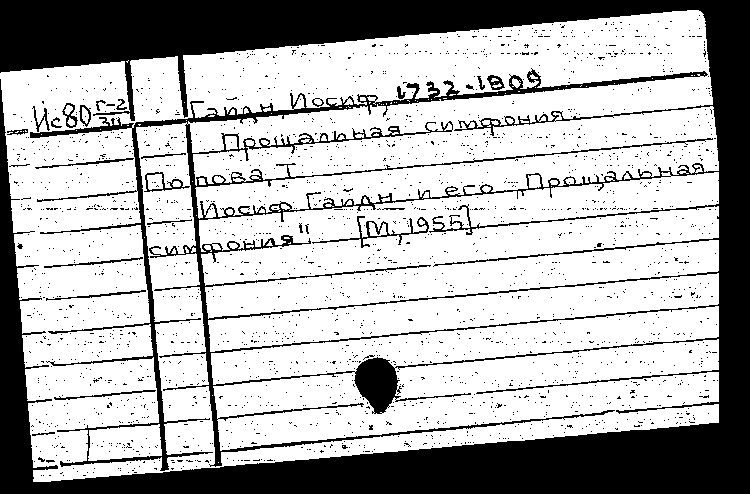 Ис80 Г-2
Гайдн, Иосиф, 1732-1809
Прощальная симфония.
Попова, Т.
Иосиф Гайдн и его „Прощальная
симфония". [М., 1955].